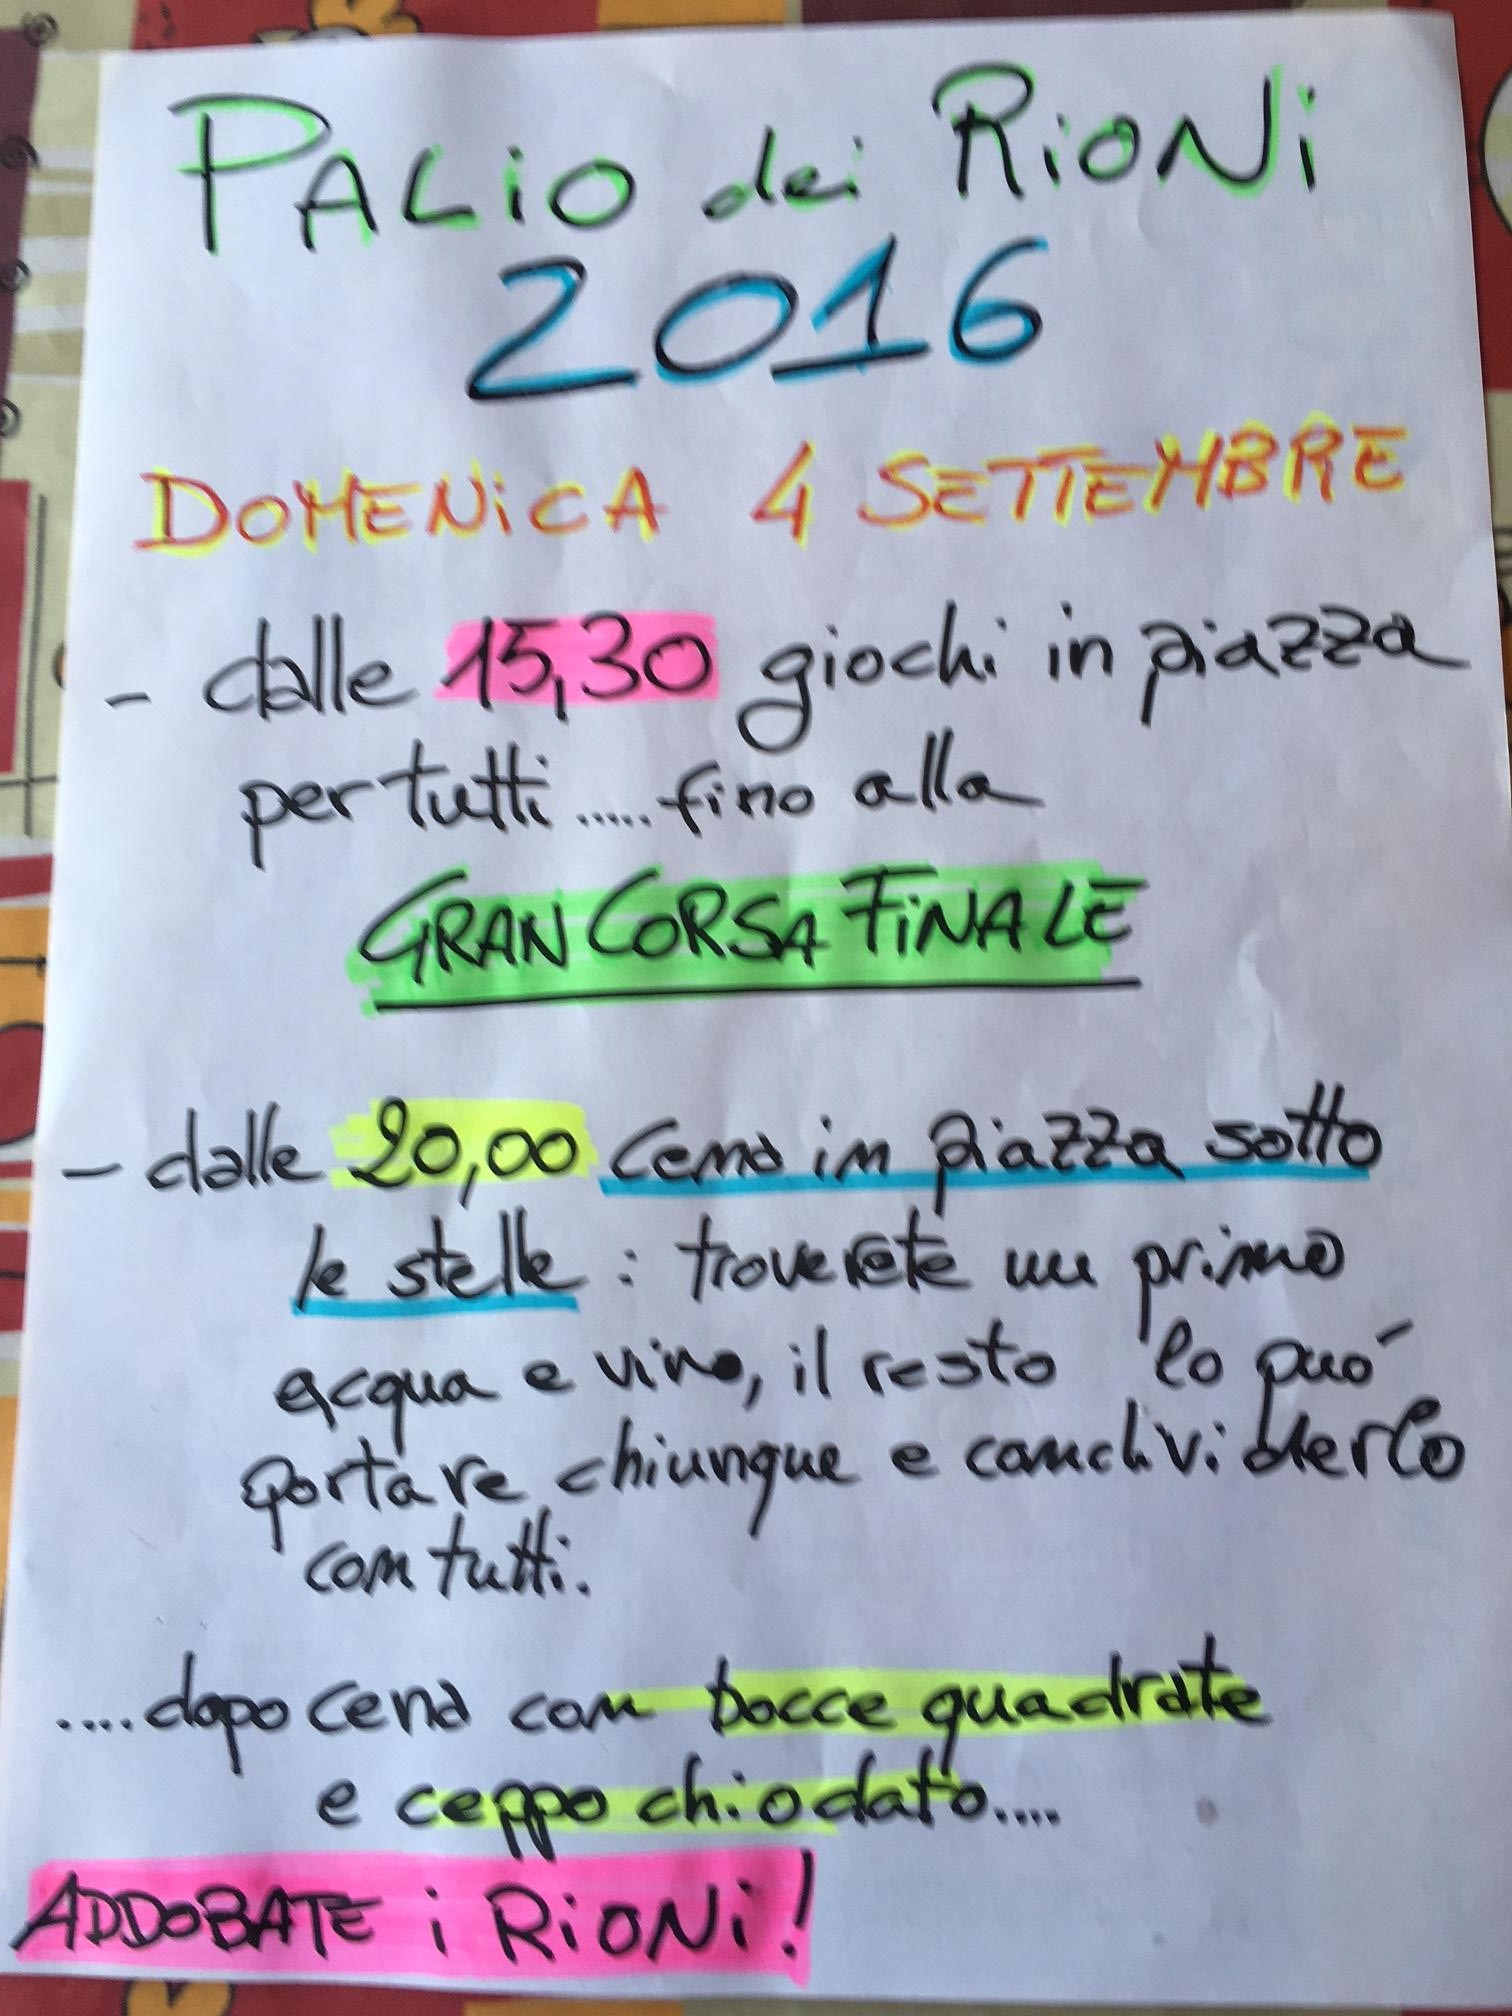 PALiO dei RiONi
2016
DOMENiCA 4 SETTEMBRE
- dalle 15,30 giochi in piazza
per tutti ..... fino alla
GRAN CORSA FiNALE
- dalle 20,00 Cena in piazza sotto
le stelle : troverete un primo
acqua e vino, il resto lo può
portare chiunque e condividerlo
con tutti.
....dopo cena con bocce quadrate
e ceppo chiodato....
ADDOBATE i RiONi!